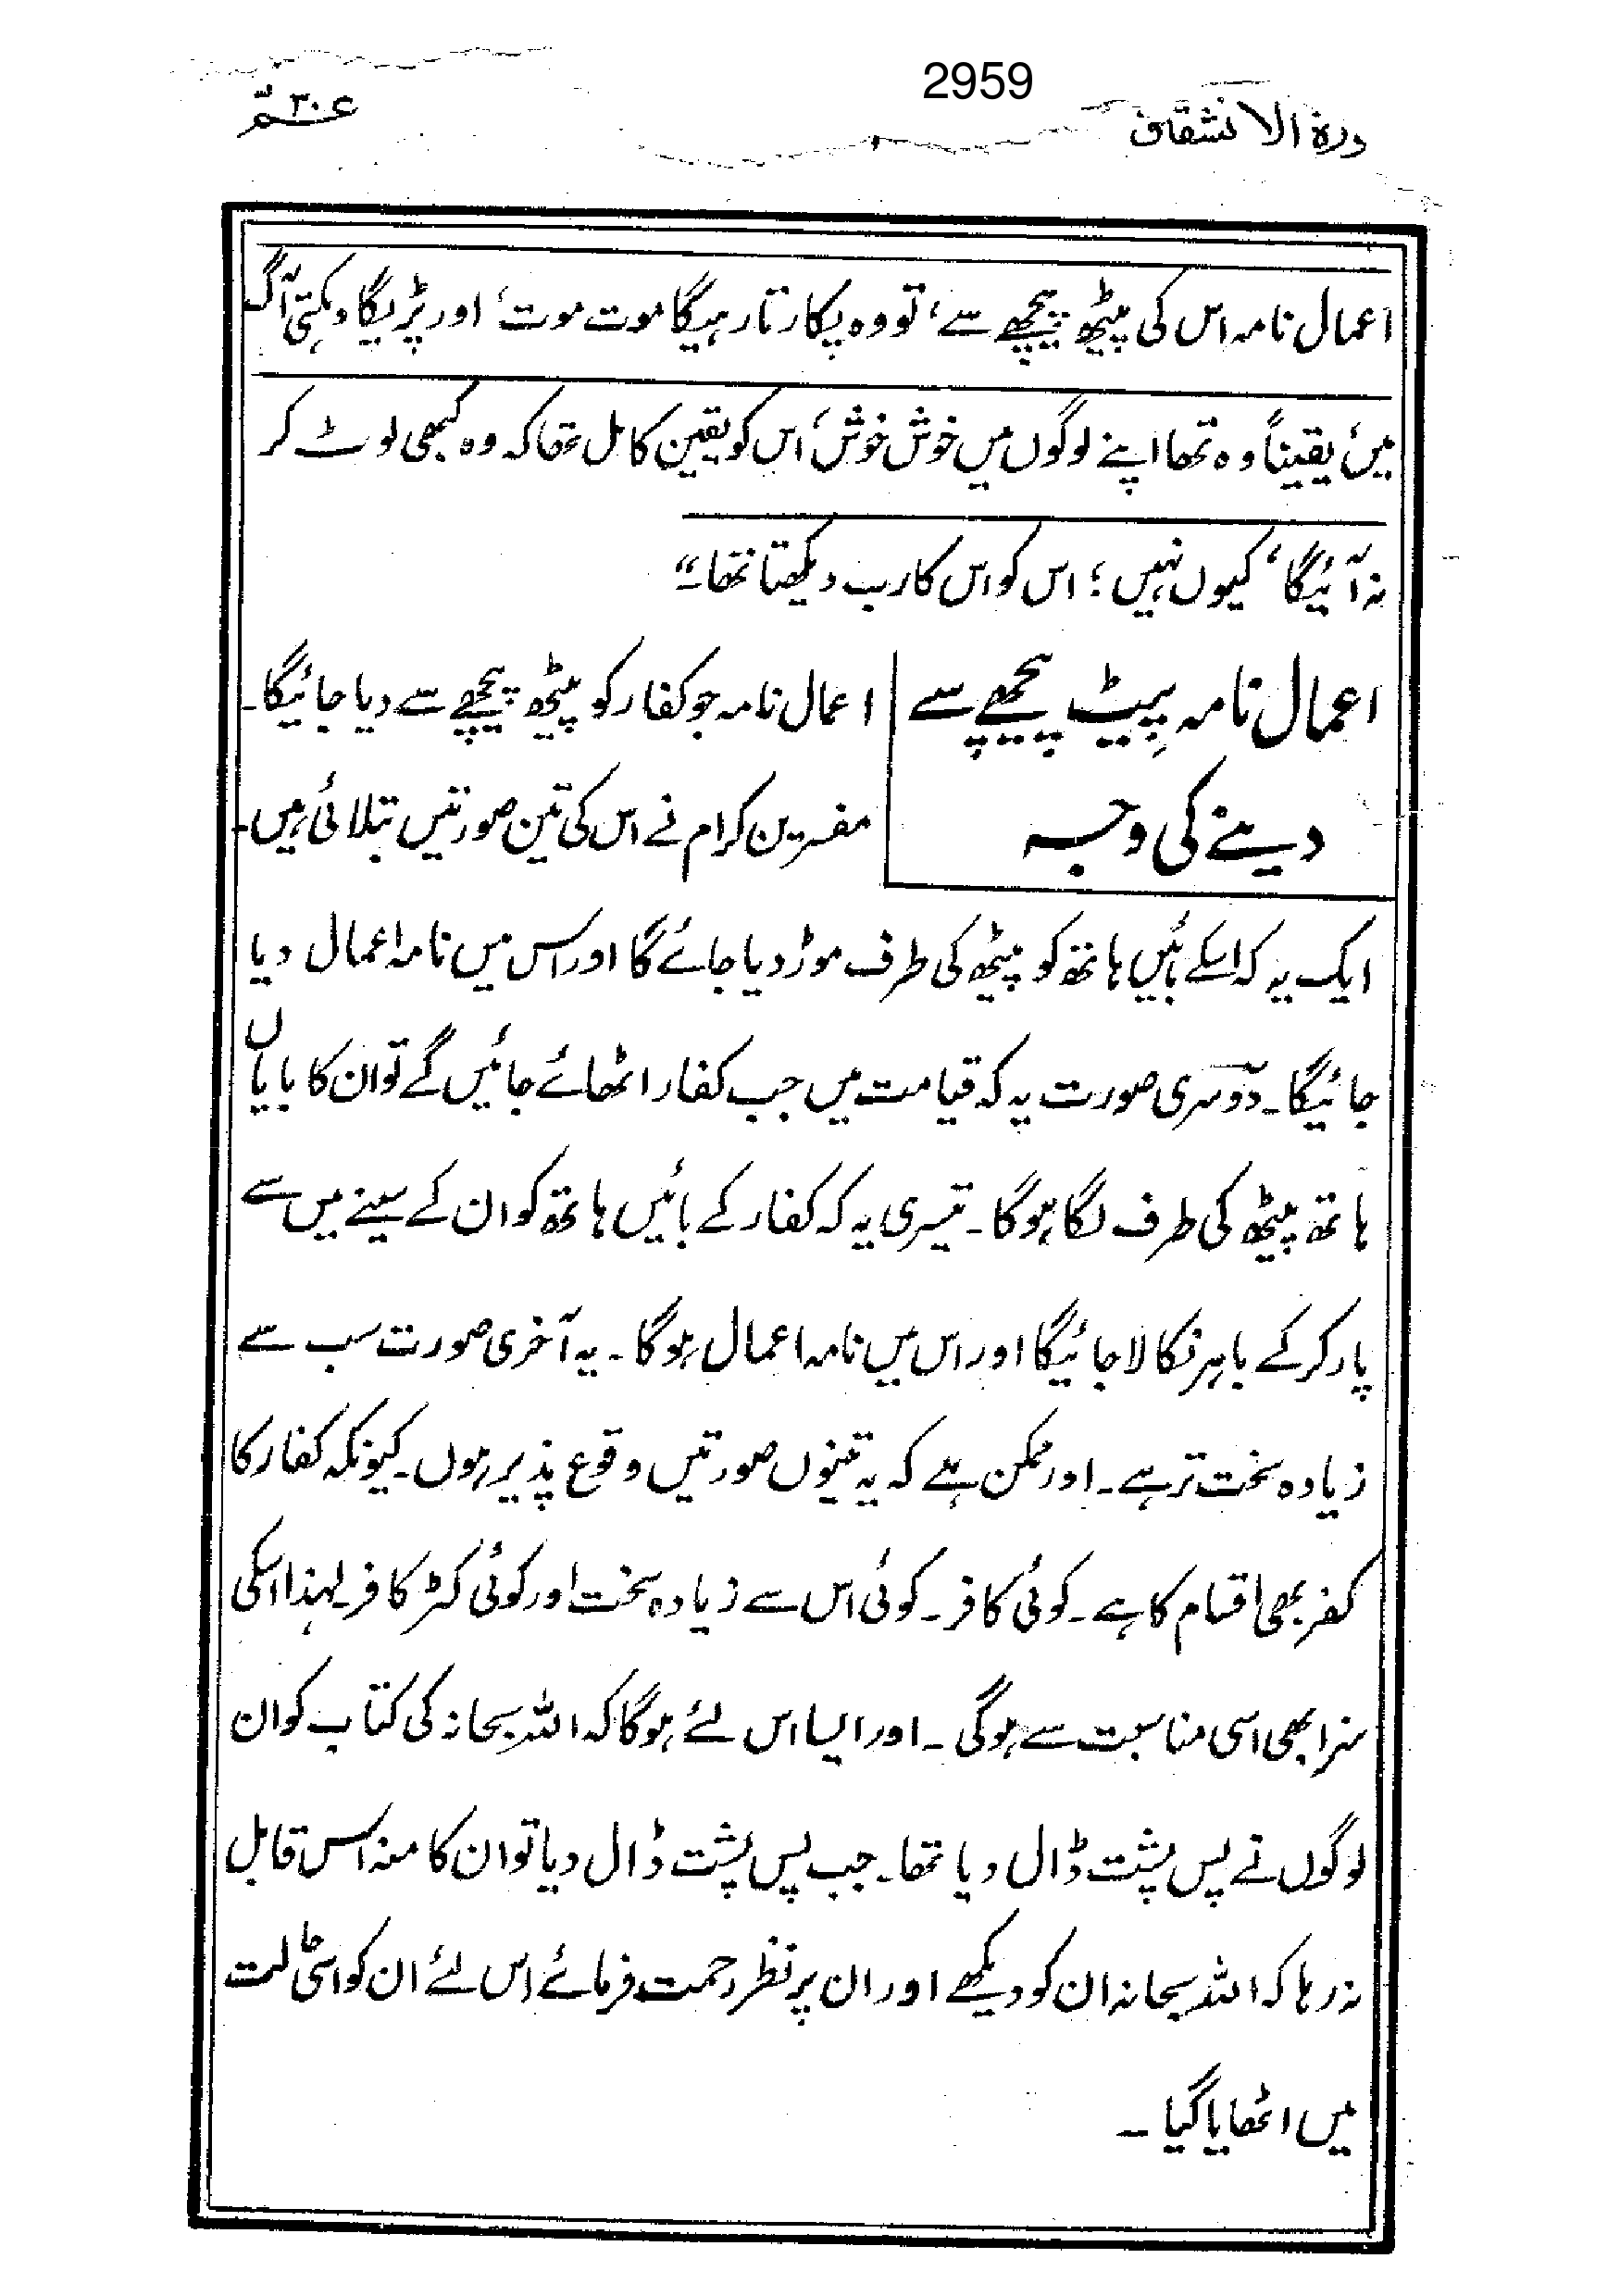 2959
ورة الانشقاق
عمّ ۳۰
اعمال نامہ اس کی پیٹھ پیچھے سے، تو وہ پکارتا رہیگا موت موت، اور پڑیگا دہکتی آگ
میں، یقیناً وہ تھا اپنے لوگوں میں خوش خوش، اس کو یقین کامل تھا کہ وہ کبھی لوٹ کر
نہ آئیگا، کیوں نہیں؛ اس کو اس کا رب دیکھتا تھا۔"
اعمال نامہ پیٹ پیچھے سے
دینے کی وجہ
اعمال نامہ جو کفار کو پیٹھ پیچھے سے دیا جائیگا۔
مفسرین کرام نے اس کی تین صورتیں بتلائی ہیں۔
ایک یہ کہ اسکے بائیں ہاتھ کو پیٹھ کی طرف موڑ دیا جائے گا اور اس میں نامہ اعمال دیا
جائیگا۔ دوسری صورت یہ کہ قیامت میں جب کفار اٹھائے جائیں گے تو ان کا بایاں
ہاتھ پیٹھ کی طرف لگا ہوگا۔ تیسری یہ کہ کفار کے بائیں ہاتھ کو ان کے سینے میں سے
پار کر کے باہر نکالا جائیگا اور اس میں نامہ اعمال ہوگا۔ یہ آخری صورت سب سے
زیادہ سخت تر ہے۔ اور ممکن ہے کہ یہ تینوں صورتیں وقوع پذیر ہوں۔ کیونکہ کفار کا
کفر بھی اقسام کا ہے۔ کوئی کافر۔ کوئی اس سے زیادہ سخت اور کوئی کٹر کافر۔ لہذا اسکی
سزا بھی اسی مناسبت سے ہوگی۔ اور ایسا اس لئے ہوگا کہ اللہ سبحانہ کی کتاب کو ان
لوگوں نے پس پشت ڈال دیا تھا۔ جب پس پشت ڈال دیا تو ان کا منہ اس قابل
نہ رہا کہ اللہ سبحانہ ان کو دیکھے اور ان پر نظر رحمت فرمائے اس لئے ان کو اسی حالت
میں اٹھایا گیا۔